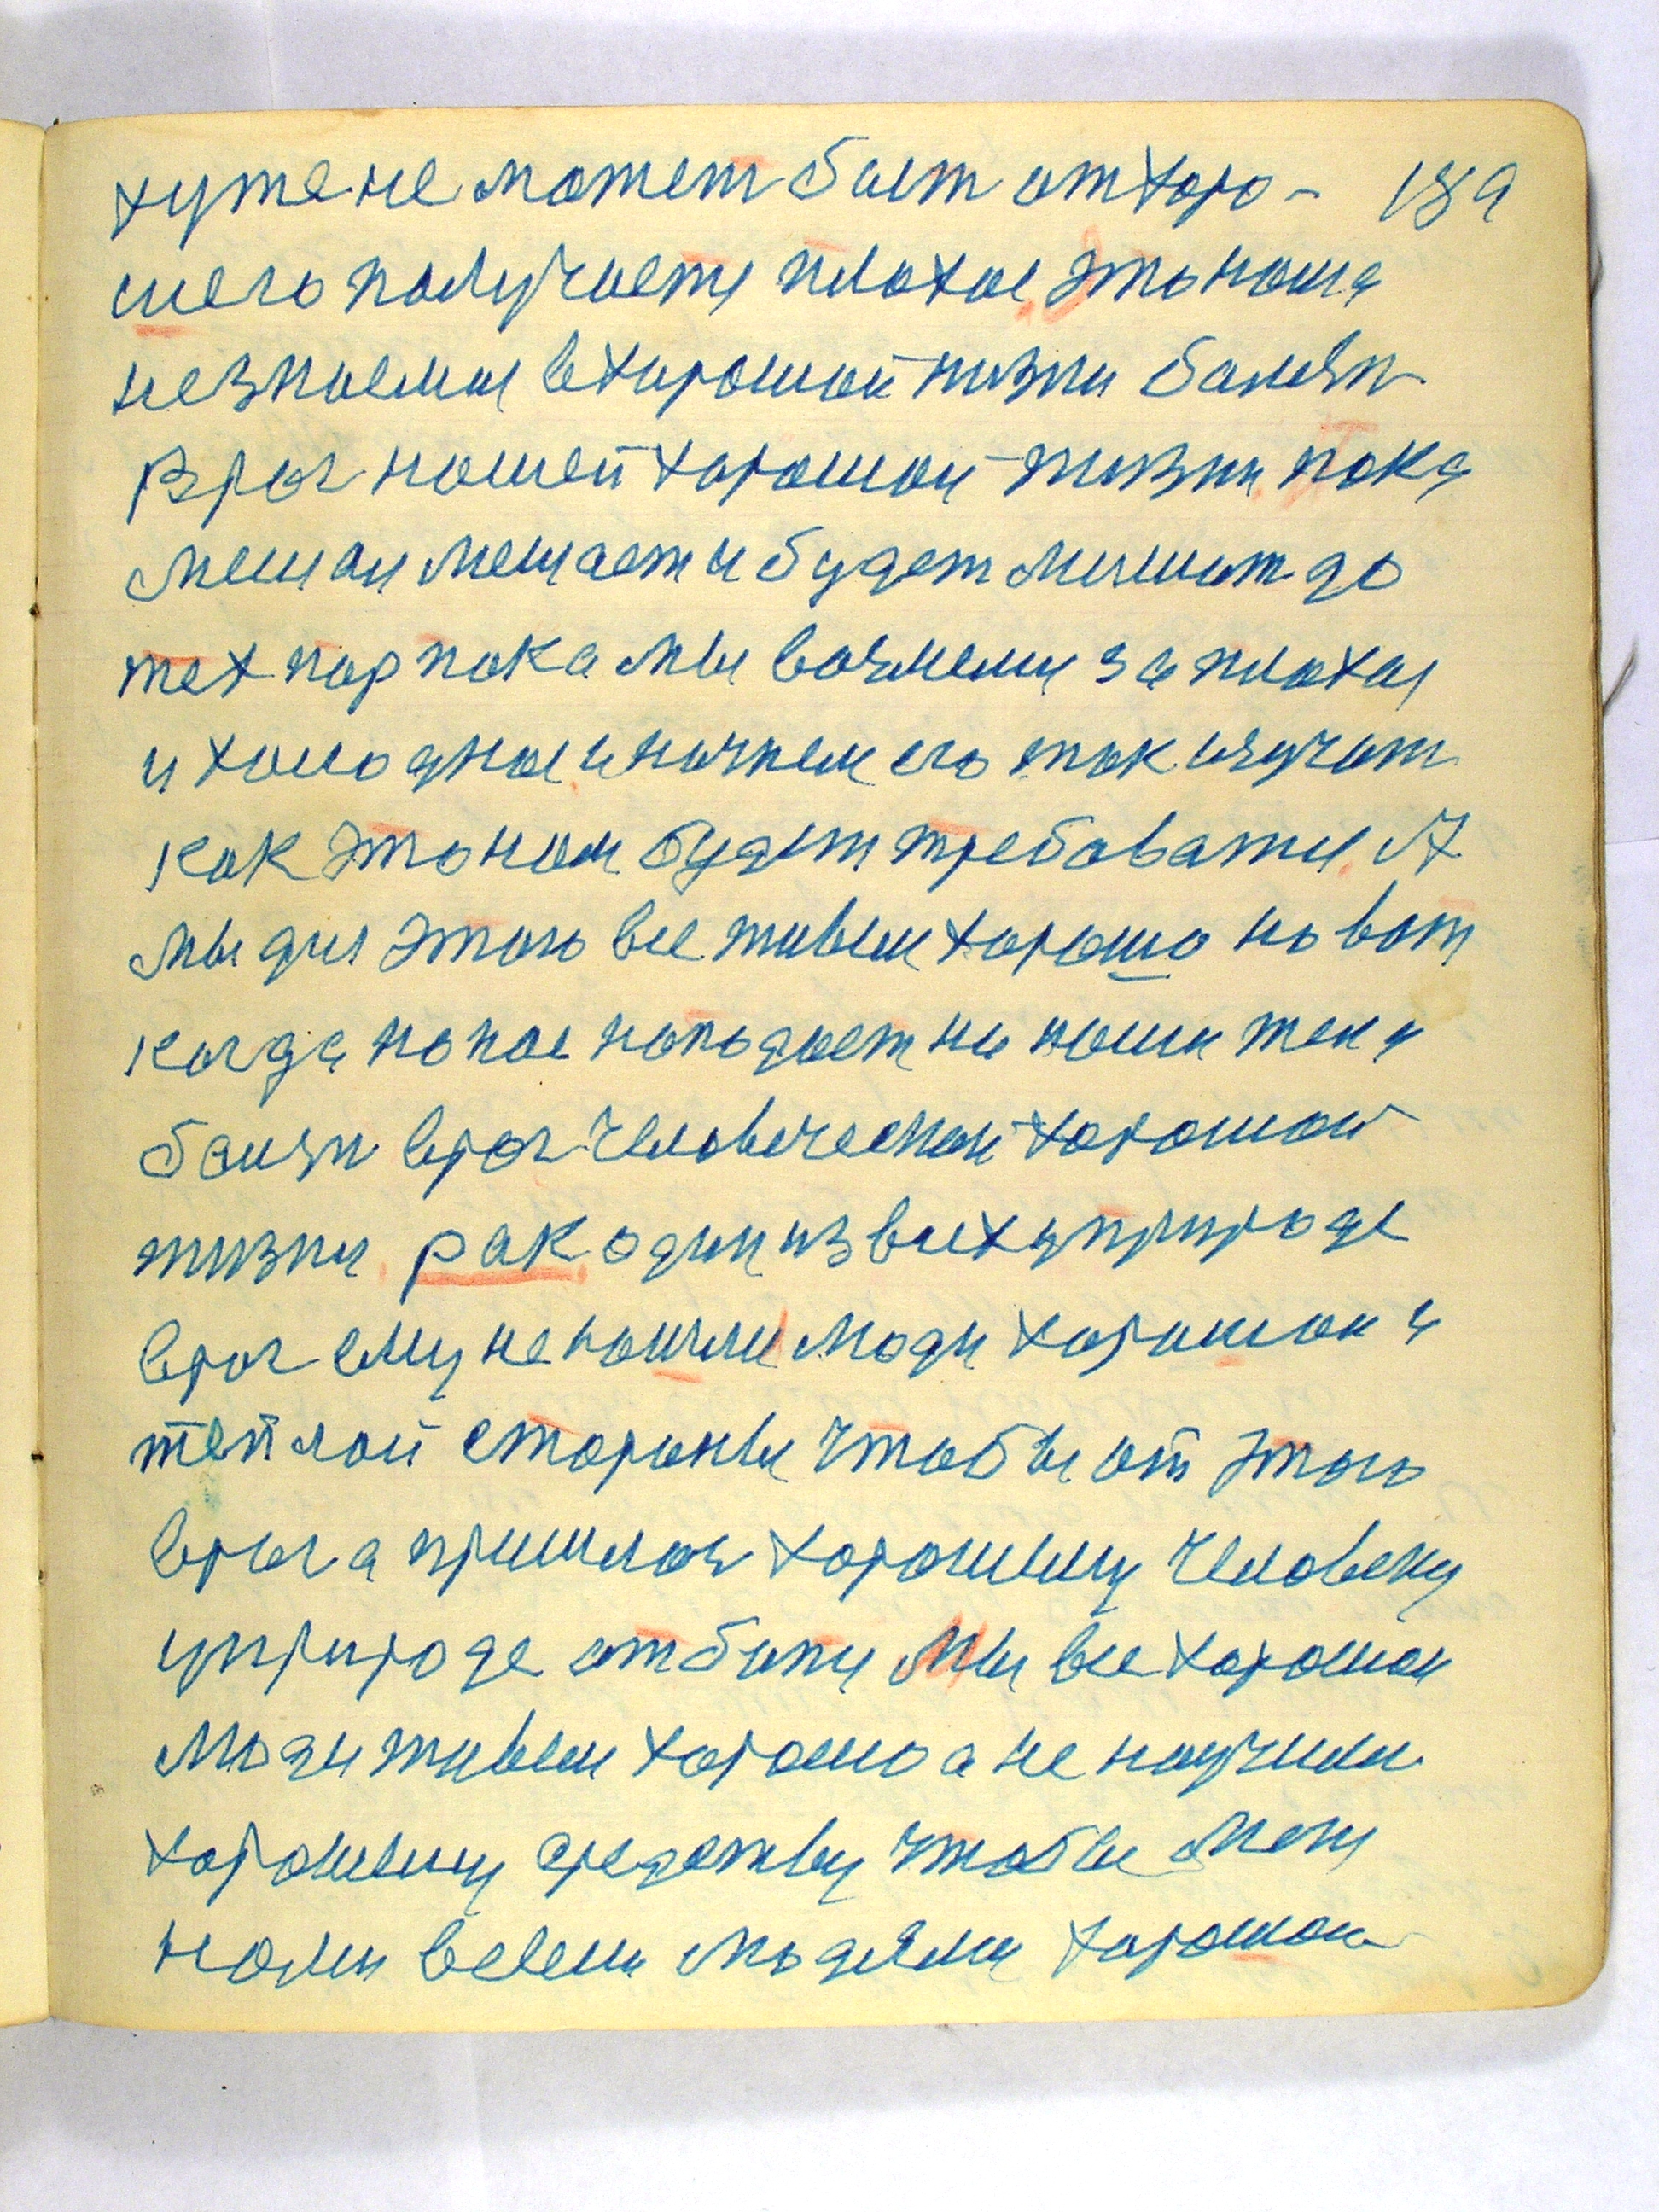 хуже не может быт от хоро- 189
шего получается плохое, это наша
незнаемая в хорошой жизни балезн
Враг нашей хорошой жизни пока
мешал мешает и будет мишат до
тех пор пока мы возмемся за плохое
и холодное и начнем его так изучат
как это нам будет требоватися А
мы для этого все живем хорошо но вот
когда на нас нападает на наши тела
болезн враг человеческой хорошой
жизни, рак один из всех у природе
враг ему не нашли люди хорошой и
теплой стороны чтобы от этого
врага пришлос хорошему человеку
у природе отбится Мы все хорошои
люди живем хорошо а не научили
хорошему средству чтобы межу
нами всеми людями хорошои